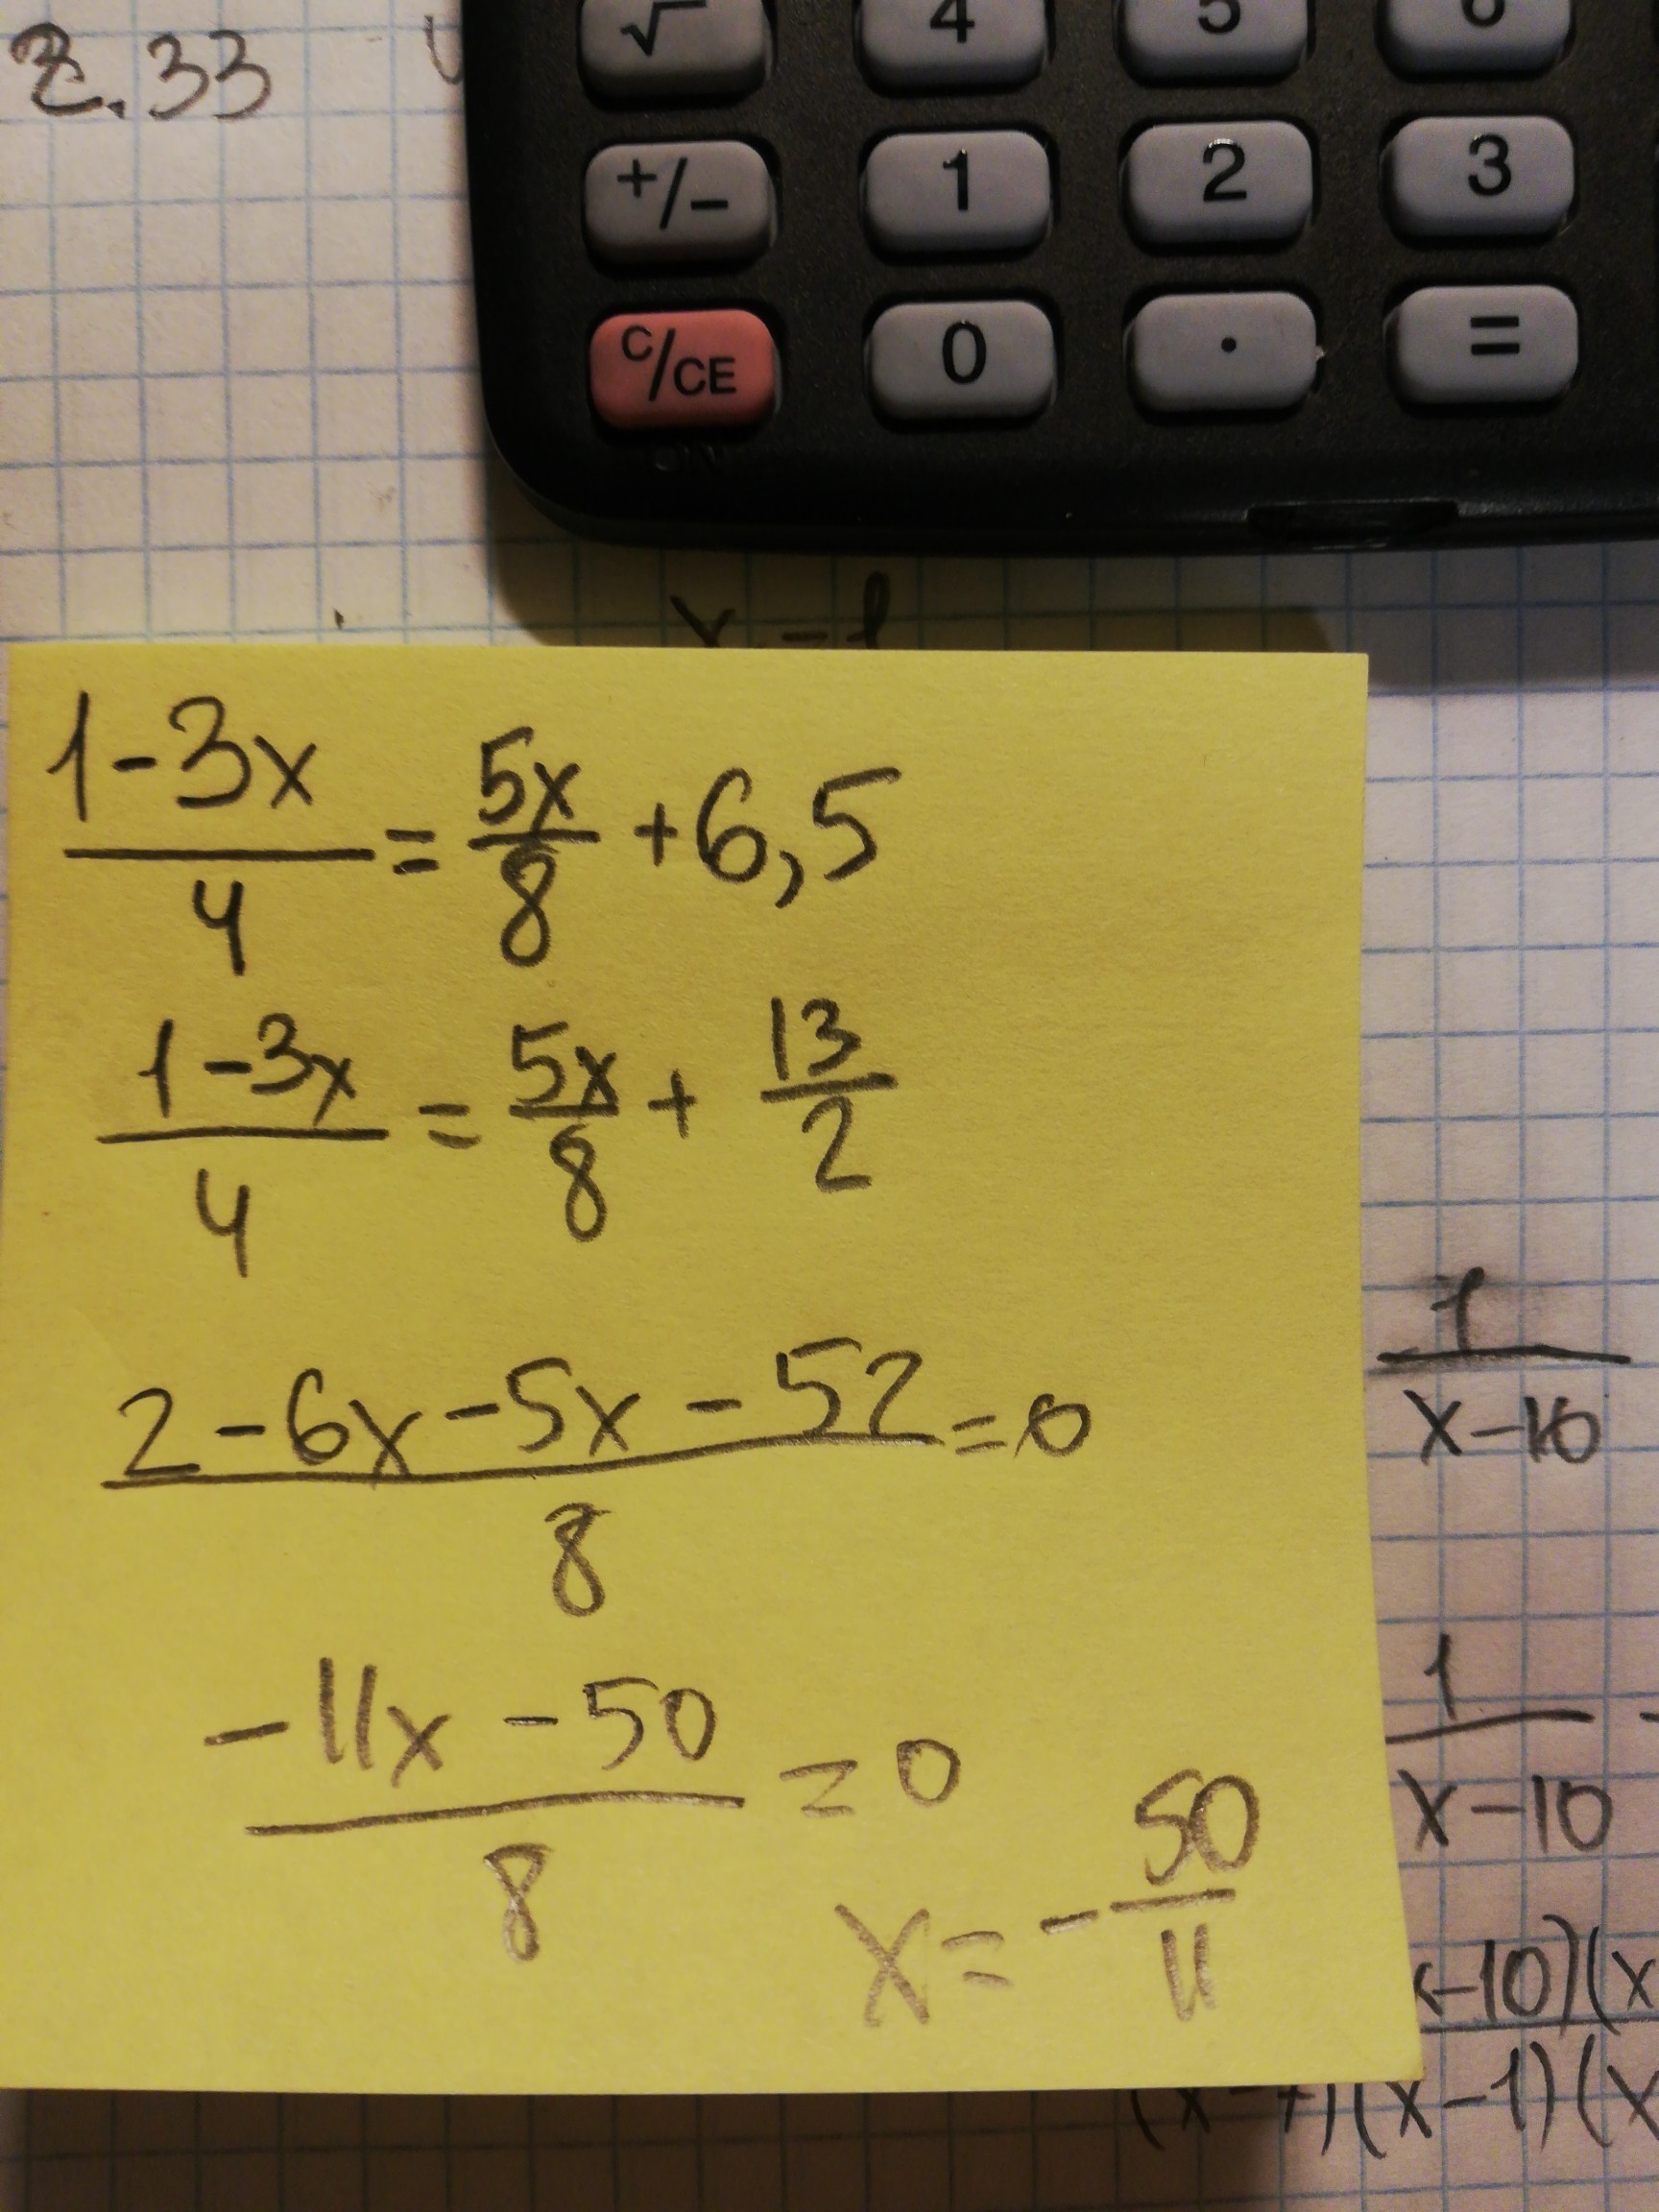 .33
√ 4 5 6
+/- 1 2 3
C/CE 0 . =
ON
1-3x/4 = 5x/8 +6,5
1-3x/4 = 5x/8 + 13/2
2-6x-5x-52/8 =0
-11x-50/8 =0
x= -50/11
1/x-10
1/x-10 -
x-10)(x
(x-7)(x-1)(x